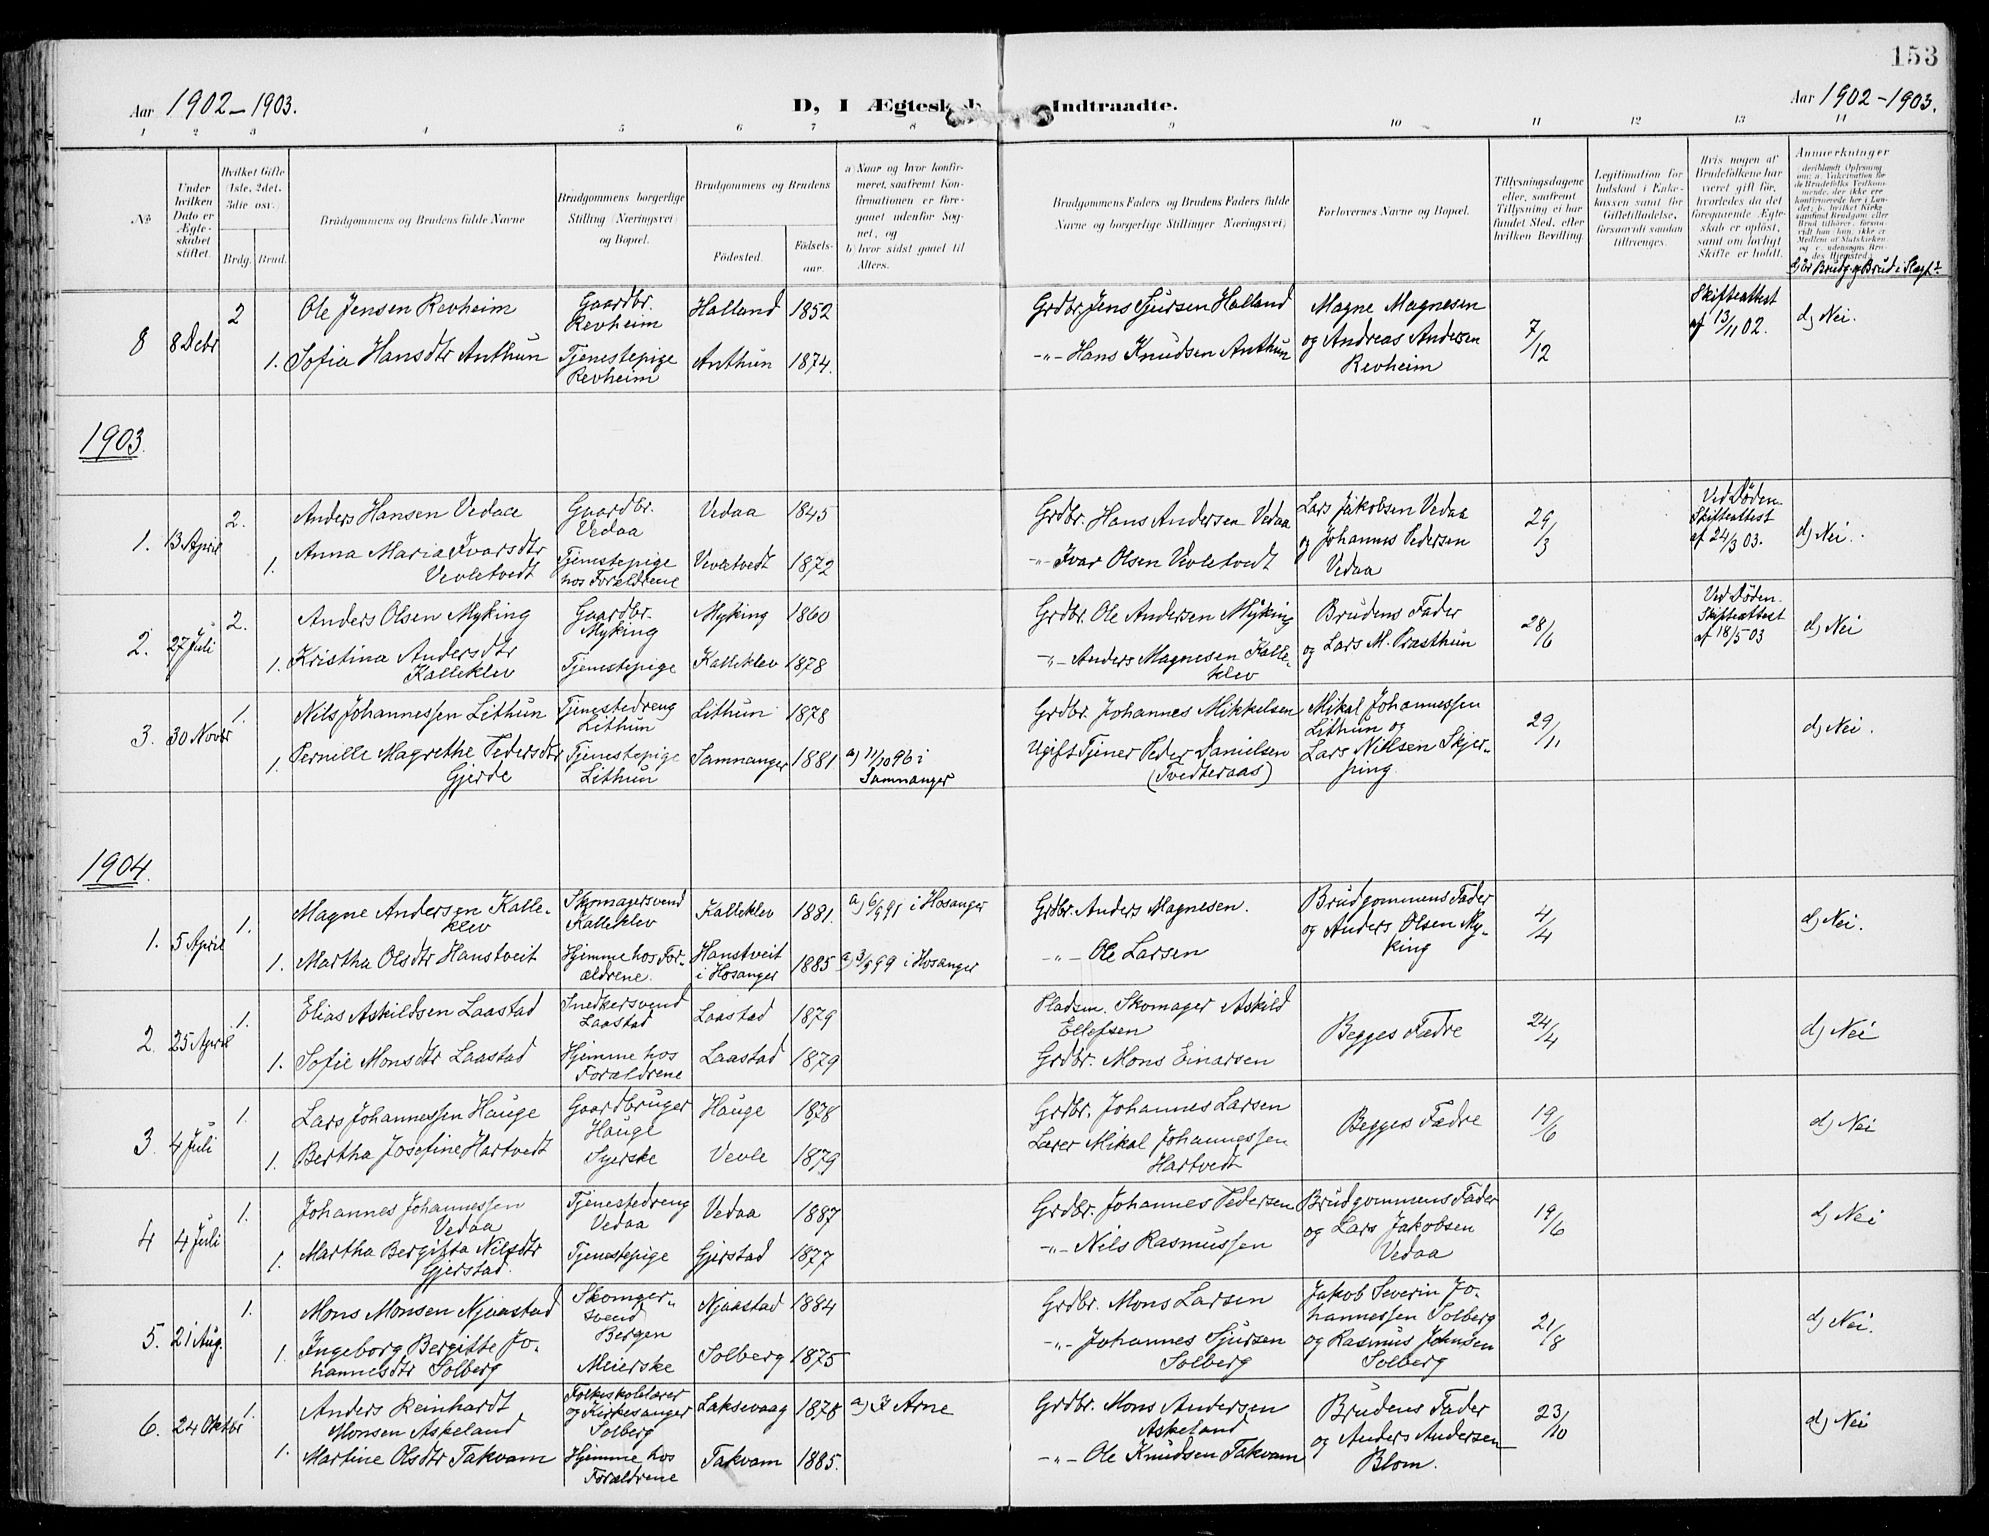 153
Aar 1902-1903.
D, I Ægtesk b Indtraadte.
Aar 1902-1903.
1 2 3 4 5 6 7 8 9 10 11 12 13 14
No
Under hvilken Dato er Ægteskabet stiftet.
Hvilket Gifte (1ste, 2det, 3die osv.)
Brdg. Brud.
Brudgommens og Brudens fulde Navne
Brudgommens borgerlige Stilling (Næringsvei) og Bopæl.
Brudgommens og Brudens
Fødested.
Fødselsaar.
a) Naar og hvor konfirmeret, saafremt Konfirmationen er foregaaet udenfor Sognet, og
b) hvor sidst gaaet til Alters.
Brudgommens Faders og Brudens Faders fulde Navne og borgerlige Stillinger (Næringsvei)
Forlovernes Navne og Bopæl.
Tillysningsdagene eller, saafremt Tillysning ei har fundet Sted, efter hvilken Bevilling.
Legitimation for Indskud i Enkekassen samt for Giftetilladelse, forsaavidt saadan tiltrænges.
Hvis nogen af Brudefolkene har været gift før, hvorledes da det foregaaende Ægteskab er opløst, samt om lovligt Skifte er holdt.
Anmerkninger
d) Er Brudg. og Brud i Slægt?
8 8 Debr
2 Ole Jensen Revheim
Gaardbr. Revheim
Halland 1852
Grdbr. Jens Sjursen Halland
1. Sofia Hansdtr Anthun
Tjenestepige Revheim
Anthun 1874.
-"- Hans Knudsen Anthun
Magne Magnesen
og Andreas Andersen
Revheim
7/12
Skifteattest
af 13/11 02.
d) Nei.
1903.
1. 13 April
2. Anders Hansen Vedaa
Gaardbr. Vedaa
Vedaa 1845
Grdbr. Hans Andersen Vedaa
1. Anna Maria Ivarsdtr
Vevletvedt
Tjenestepige
hos Forældrene
Vevletvedt 1872
-"- Ivar Olsen Vevletvedt
Lars Jakobsen Vedaa
og Johannes Pedersen
Vedaa
29/3
Ved Døden.
Skifteattest
af 24/3 03.
d) Nei.
2. 27 Juli
2. Anders Olsen Myking
Gaardbr. Myking
Myking 1860
Grdbr. Ole Andersen Myking
1. Kristina Andersdtr
Kalleklev
Tjenestepige
Kalleklev 1878
-"- Anders Magnesen Kalle-
klev
Brudens Fader
og Lars M. Prasthun
28/6
Ved Døden.
Skifteattest
af 18/5 03
d) Nei
3. 30 Novbr
1. Nils Johannessen Lithun
Tjenestedreng
Lithun
Lithun 1878
Grdbr. Johannes Mikkelsen
1. Pernille Magrethe Pedersdtr
Gjerde
Tjenestepige
Lithun
Samnanger 1881
a) 11/10 96 i
Samnanger
Ugift Tjener Peder Danielsen
(Tvedteraas)
Mikal Johannessen
Lithun og
Lars Nielsen Skjer-
ping.
29/11
d) Nei.
1904.
1. 5 April
1. Magne Andersen Kalle-
klev
Skomagersvend
Kalleklev
Kalleklev 1881.
a) 6/9 91 i Hosanger
Grdbr. Anders Magnesen.
1. Martha Olsdtr Hanstveit
Hjemme hos For-
ældrene.
Hanstveit
i Hosanger
1885
a) 3/9 99 i Hosanger
-"- Ole Larsen
Brudgommens Fader
og Anders Olsen My-
king
4/4
d) Nei.
2. 25 April
1. Elias Askildsen Laastad
Snedkersvend
Laastad
Laastad 1879
Pladsm. Skomager Askild
Ellefsen
1. Sofie Monsdtr Laastad
Hjemme hos
Forældrene
Laastad 1879
Grdbr. Mons Einarsen
Begges Fædre
24/4
d) Nei
3. 4 Juli
1. Lars Johannessen Hauge
Gaardbruger
Hauge
Hauge 1878
Grdbr. Johannes Larsen
1. Bertha Josefine Hartvedt
Syerske
Vevle 1879
Lærer Mikal Johannessen
Hartvedt
Begges Fædre
19/6
d) Nei
4 4 Juli
1. Johannes Johannessen
Vedaa
Tjenestedreng
Vedaa
Vedaa 1887
Grdbr. Johannes Pedersen
1. Martha Bergitta Nilsdtr
Gjerstad.
Tjenestepige
Gjerstad 1877
-"- Nils Rasmussen
Brudgommens Fader
og Lars Jakobsen
Vedaa
19/6
d) Nei
5. 21 Aug.
1. Mons Monsen Njaastad
Skomger-
svend
Bergen
Njaastad 1884
Grdbr. Mons Larsen
1. Ingeborg Bergitte Jo-
hannesdtr Solberg
Meierske
Solberg 1875
-"- Johannes Sjursen
Solberg
Jakob Severin Jo-
hannessen Solberg
og Rasmus Johnsen
Solberg
21/8
d) Nei.
6. 24 Oktbr
1. Anders Reinhardt
Monsen Askeland
Folkeskolelærer
og Kirkesanger
Solberg
Laksevaag 1878
a) I Arne
Grdbr. Mons Andersen
Askeland
1. Martine Olsdtr Takvam
Hjemme hos
Forældrene
Takvam 1885.
-"- Ole Knudsen Takvam
Brudens Fader
og Anders Andersen
Blom.
23/10
d) Nei